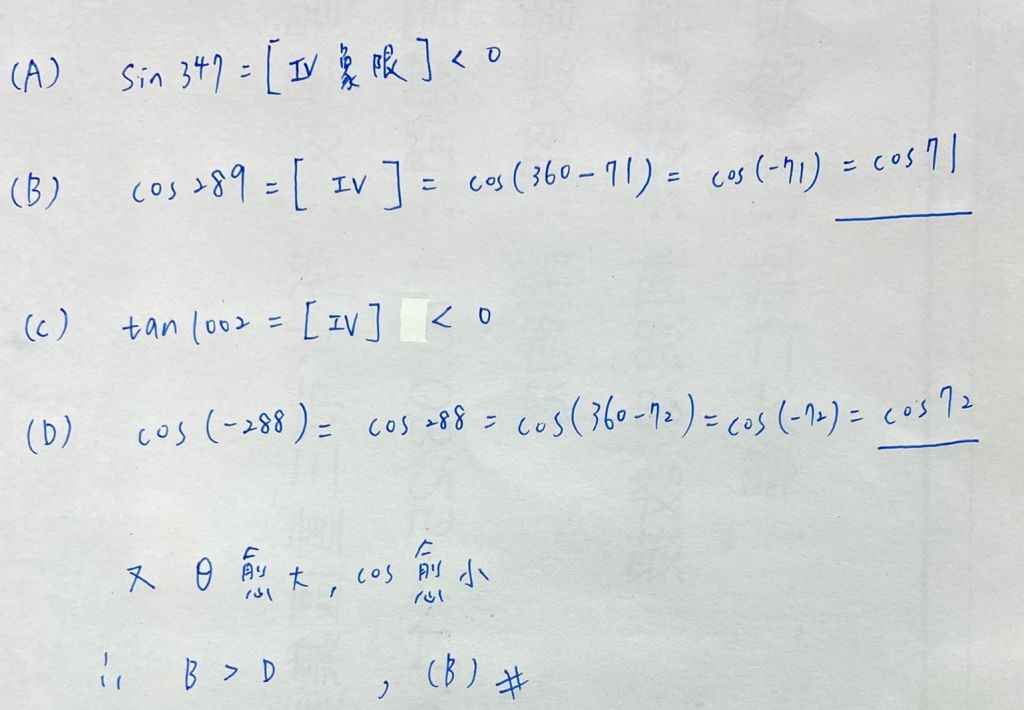 (A) sin 347 = [ IV 象限 ] < 0
(B) cos 289 = [ IV ] = cos(360-71) = cos(-71) = cos 71
(C) tan 1002 = [ IV ] < 0
(D) cos (-288) = cos 288 = cos(360-72) = cos (-72) = cos 72
又 θ 愈大, cos 愈小
∴ B > D , (B) #